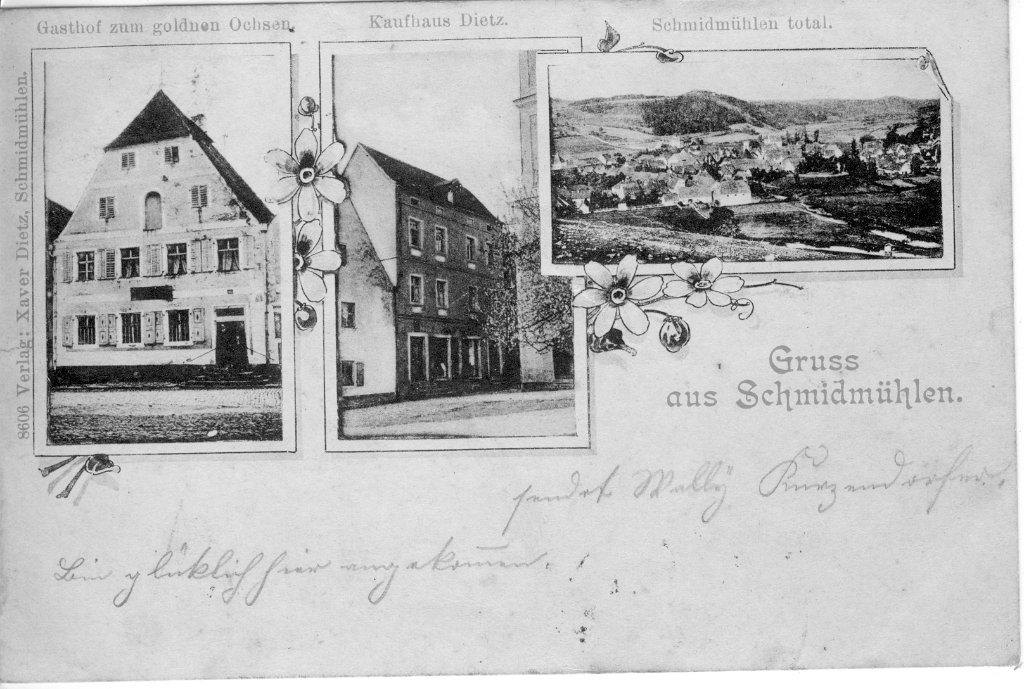 Gasthof zum goldnen Ochsen.
Kaufhaus Dietz.
Schmidmühlen total.
8606 Verlag: Xaver Dietz, Schmidmühlen.
Gruss
aus Schmidmühlen.
sendet Wally Kurzendorfer.
Bin glücklich hier angekommen.